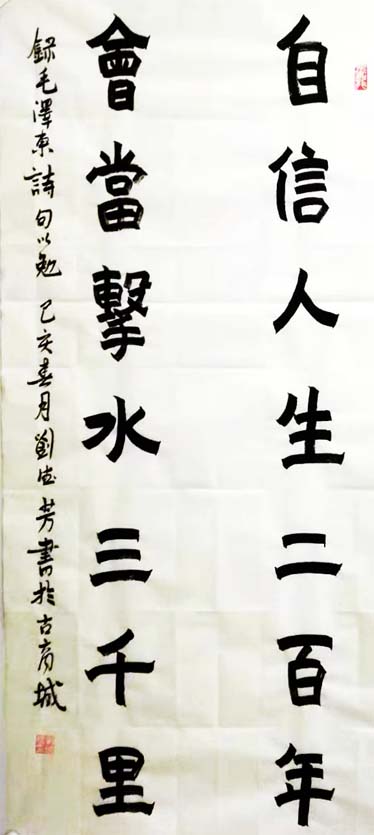 自信人生二百年
會當擊水三千里
録毛澤東詩句以勉 己亥春月劉德芳書於古商城